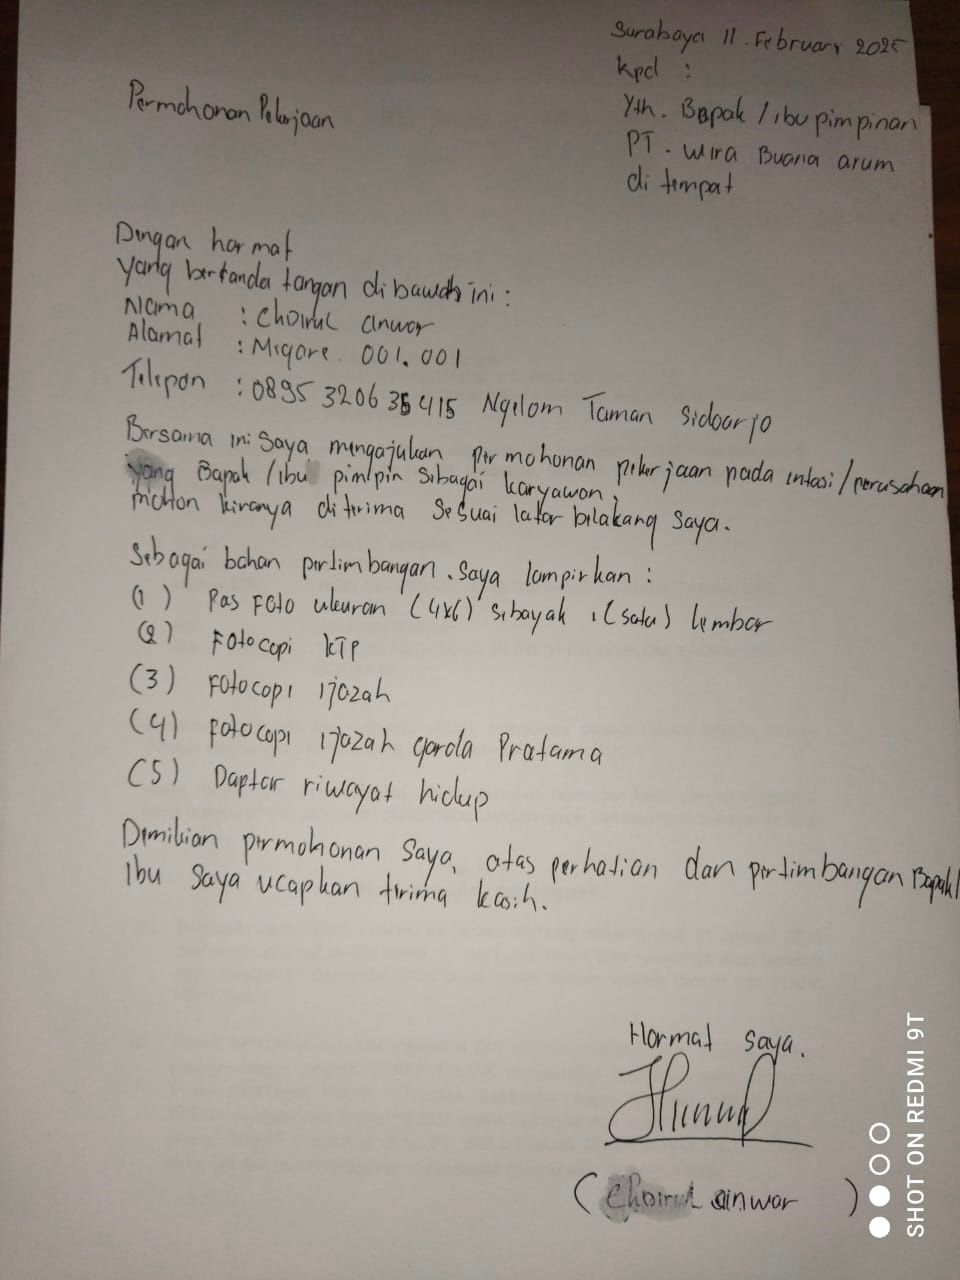 Surabaya 11. Februari 2025
Kpd :
Permohonan Pekerjaan
Yth. Bapak / ibu pimpinan
PT. Wira Buana arum
di tempat
Dengan hormat
yang bertanda tangan di bawah ini :
Nama : Choirul anwar
Alamat : Megare 001.001
Telepon : 0895 3206 35 415 Ngelom Taman Sidoarjo
Bersama ini saya mengajukan permohonan pekerjaan pada intasi/perusahaan
yang Bapak /ibu pimipin sebagai karyawan,
mohon kiranya diterima sesuai latar belakang saya.
Sebagai bahan pertimbangan. saya lampirkan :
(1) Pas Foto ukuran (4x6) sebayak 1 (satu) lembar
(2) Fotocopi KTP
(3) Fotocopi ijazah
(4) Fotocopi ijazah garda Pratama
(5) Daptar riwayat hidup
Demikian permohonan saya, atas perhatian dan pertimbangan Bapak/
Ibu saya ucapkan terima kasih.
Hormat saya.
(Choirul anwar)
SHOT ON REDMI 9T